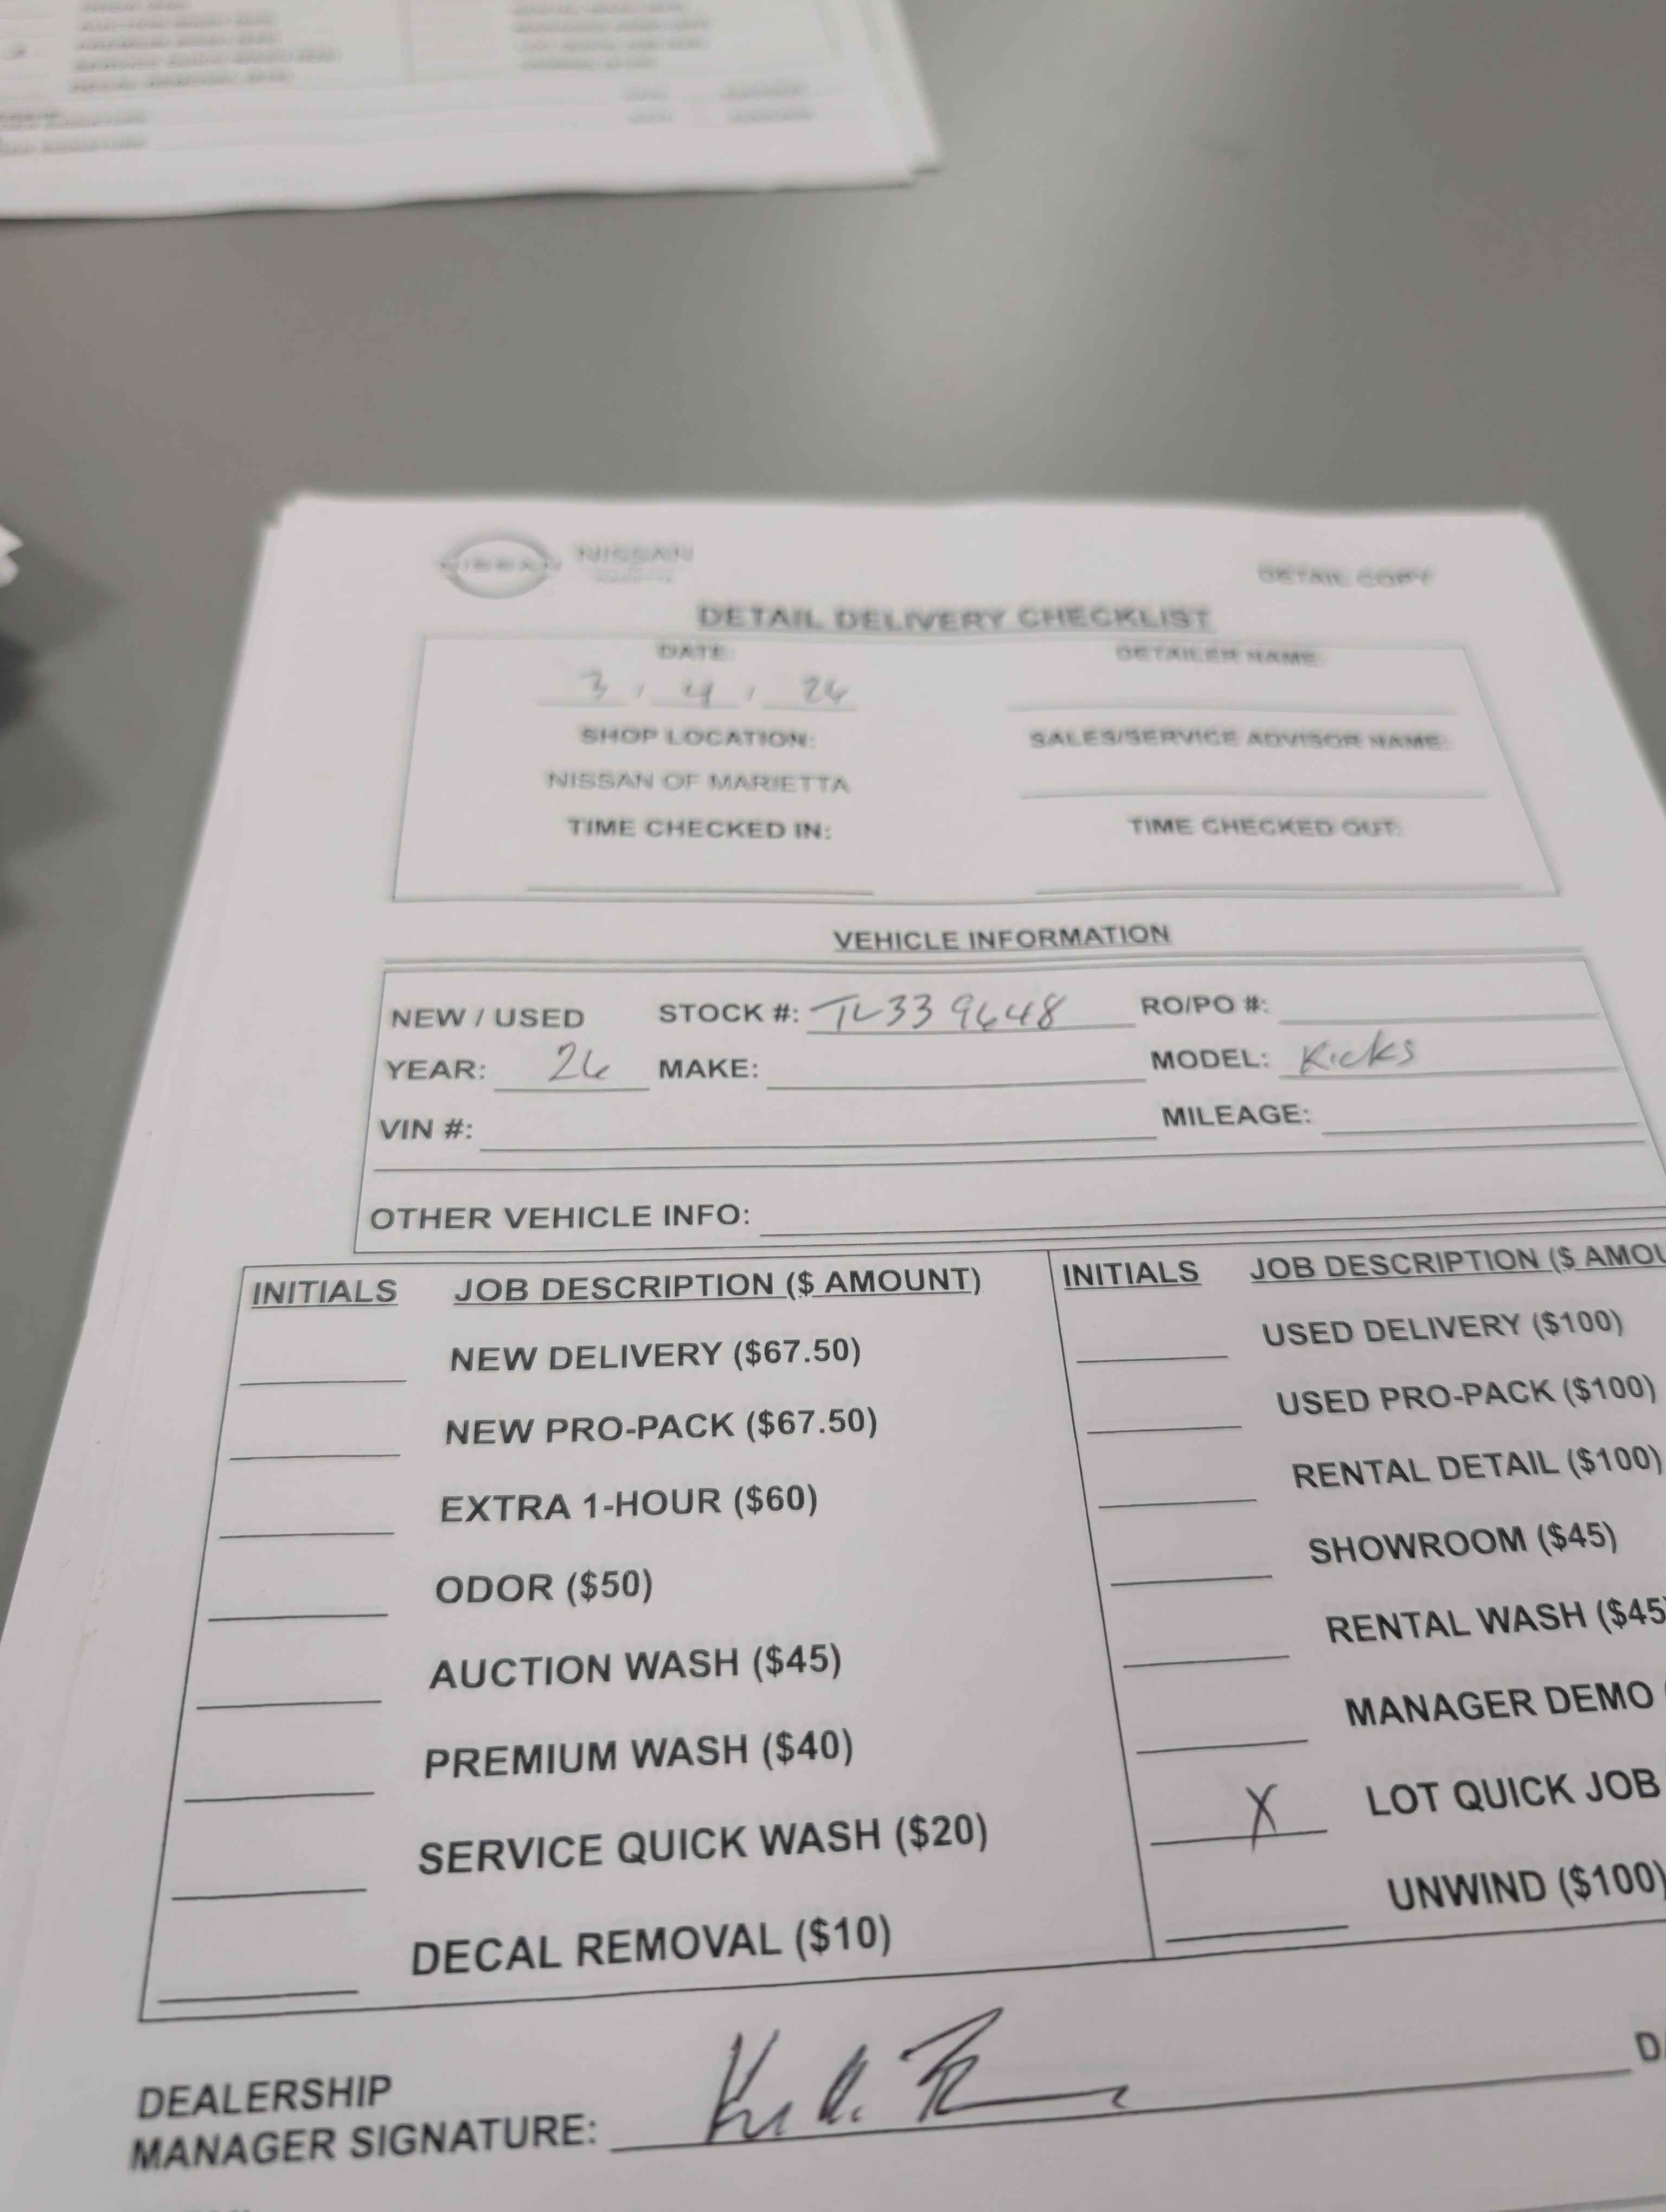 NISSAN NISSAN
DETAIL COPY
DETAIL DELIVERY CHECKLIST
DATE: DETAILER NAME:
3 / 4 / 26
SHOP LOCATION: SALES/SERVICE ADVISOR NAME:
NISSAN OF MARIETTA
TIME CHECKED IN: TIME CHECKED OUT:
VEHICLE INFORMATION
NEW / USED STOCK #: TL339648 RO/PO #:
YEAR: 26 MAKE: MODEL: Kicks
VIN #: MILEAGE:
OTHER VEHICLE INFO:
INITIALS JOB DESCRIPTION ($ AMOUNT)
NEW DELIVERY ($67.50)
NEW PRO-PACK ($67.50)
EXTRA 1-HOUR ($60)
ODOR ($50)
AUCTION WASH ($45)
PREMIUM WASH ($40)
SERVICE QUICK WASH ($20)
DECAL REMOVAL ($10)
INITIALS JOB DESCRIPTION ($ AMOU
USED DELIVERY ($100)
USED PRO-PACK ($100)
RENTAL DETAIL ($100)
SHOWROOM ($45)
RENTAL WASH ($45)
MANAGER DEMO (
X LOT QUICK JOB
UNWIND ($100)
DEALERSHIP
MANAGER SIGNATURE: